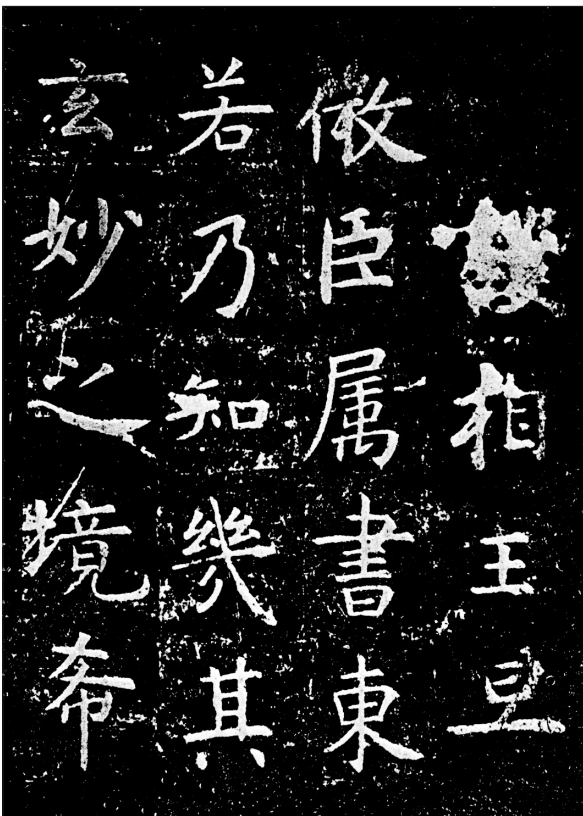 相王旦
微臣属書東
若乃知幾其
玄妙之境希